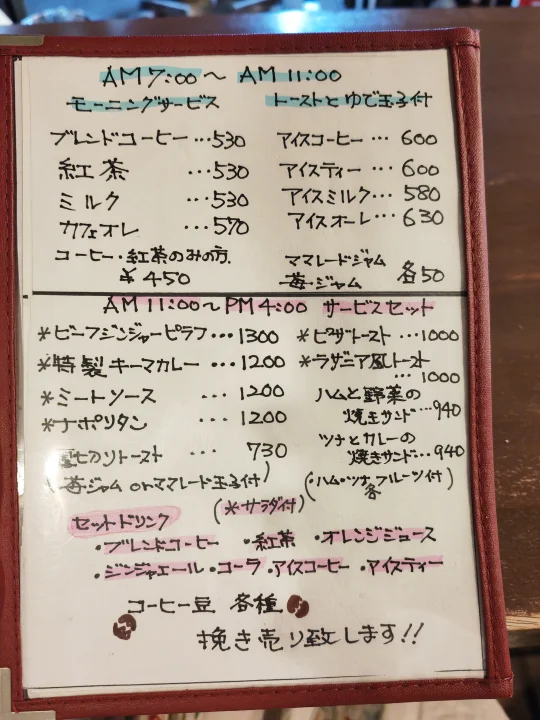 AM 7:00～ AM 11:00
モーニングサービス トーストとゆで玉子付
ブレンドコーヒー…530
紅茶 …530
ミルク …530
カフェオレ …570
コーヒー・紅茶のみの方.
¥450
アイスコーヒー… 600
アイスティー… 600
アイスミルク… 580
アイスオーレ… 630
ママレードジャム
苺・ジャム 各50
AM 11:00～PM 4:00 サービスセット
*ビーフジンジャーピラフ…1300
*特製キーマカレー…1200
*ミートソース …1200
*ナポリタン …1200
トースト …730
苺・ジャム orママレード玉子付)
*ピザトースト…1000
*ラザニア風トースト
…1000
ハムと野菜の
焼玉サンド…940
ツナとカレーの
焼きサンド…940
(・ハム・ツナ フルーツ付)
各
(*サラダ付)
セットドリンク
・ブレンドコーヒー ・紅茶 ・オレンジジュース
・ジンジャエール・コーラ・アイスコーヒー・アイスティー
コーヒー豆 各種
挽き売り致します!!